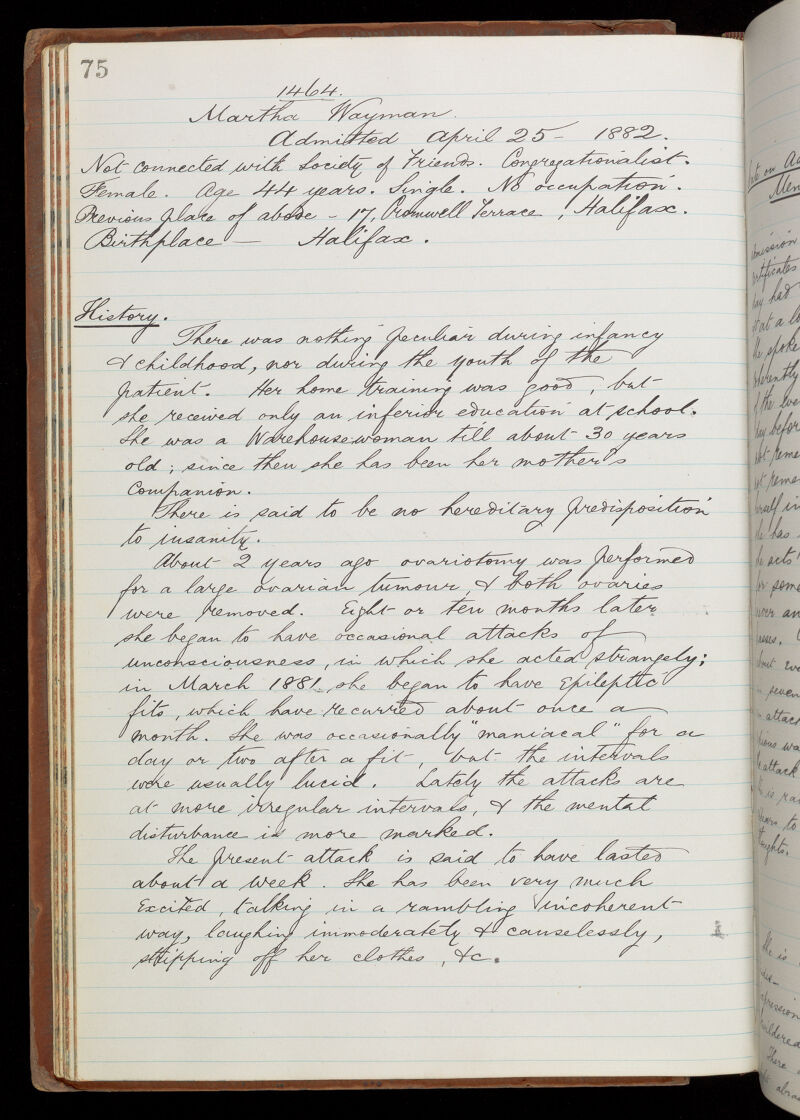 75
1464.
Martha Wayman.
Admitted April 25 - 1882.
Not connected with Society of Friends. Congregationalist.
Female. Age 44 years. Single. No occupation.
Previous place of abode - 17, Cromwell Terrace, Halifax.
Birthplace — Halifax.
History.
There was nothing peculiar during infancy
& childhood, nor during the youth of the
patient. Her home training was good, but
she received only an inferior education at school.
She was a Warehousewoman till about 30 years
old; since then she has been her mother's
Companion.
There is said to be no hereditary predisposition
to insanity.
About 2 years ago ovariotomy was performed
for a large ovarian tumour, & both ovaries
were removed. Eight or ten months later
she began to have occasional attacks of
unconsciousness, in which she acted strangely;
in March 1881 she began to have Epileptic
fits, which have recurred about once a
month. She was occasionally "maniacal" for a
day or two after a fit, but the intervals
were usually lucid. Lately the attacks are
at more irregular intervals, & the mental
disturbance is more marked.
The present attack is said to have lasted
about a week. She has been very much
Excited, talking in a rambling incoherent
way, laughing immoderately & causelessly,
stripping off her clothes, &c.